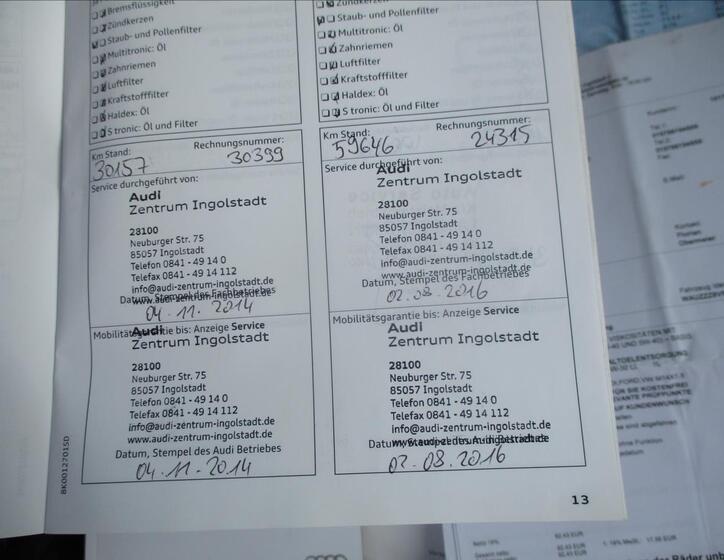 Bremsflüssigkeit
Zündkerzen
Staub- und Pollenfilter
Multitronic: Öl
Zahnriemen
Luftfilter
Kraftstofffilter
Haldex: Öl
S tronic: Öl und Filter
Km Stand: Rechnungsnummer:
30157 30399
Service durchgeführt von:
Audi
Zentrum Ingolstadt
28100
Neuburger Str. 75
85057 Ingolstadt
Telefon 0841 - 49 14 0
Telefax 0841 - 49 14 112
info@audi-zentrum-ingolstadt.de
www.audi-zentrum-ingolstadt.de
Datum, Stempel des Fachbetriebes
04.11.2014
Mobilitätsgarantie bis: Anzeige Service
Audi
Zentrum Ingolstadt
28100
Neuburger Str. 75
85057 Ingolstadt
Telefon 0841 - 49 14 0
Telefax 0841 - 49 14 112
info@audi-zentrum-ingolstadt.de
www.audi-zentrum-ingolstadt.de
Datum, Stempel des Audi Betriebes
04.11.2014
8K0012701SD
Zündkerzen
Staub- und Pollenfilter
Multitronic: Öl
Zahnriemen
Luftfilter
Kraftstofffilter
Haldex: Öl
S tronic: Öl und Filter
Km Stand: Rechnungsnummer:
59646 24315
Service durchgeführt von:
Audi
Zentrum Ingolstadt
28100
Neuburger Str. 75
85057 Ingolstadt
Telefon 0841 - 49 14 0
Telefax 0841 - 49 14 112
info@audi-zentrum-ingolstadt.de
www.audi-zentrum-ingolstadt.de
Datum, Stempel des Fachbetriebes
02.08.2016
Mobilitätsgarantie bis: Anzeige Service
Audi
Zentrum Ingolstadt
28100
Neuburger Str. 75
85057 Ingolstadt
Telefon 0841 - 49 14 0
Telefax 0841 - 49 14 112
info@audi-zentrum-ingolstadt.de
www.audi-zentrum-ingolstadt.de
Datum, Stempel des Audi Betriebes
02.08.2016
13